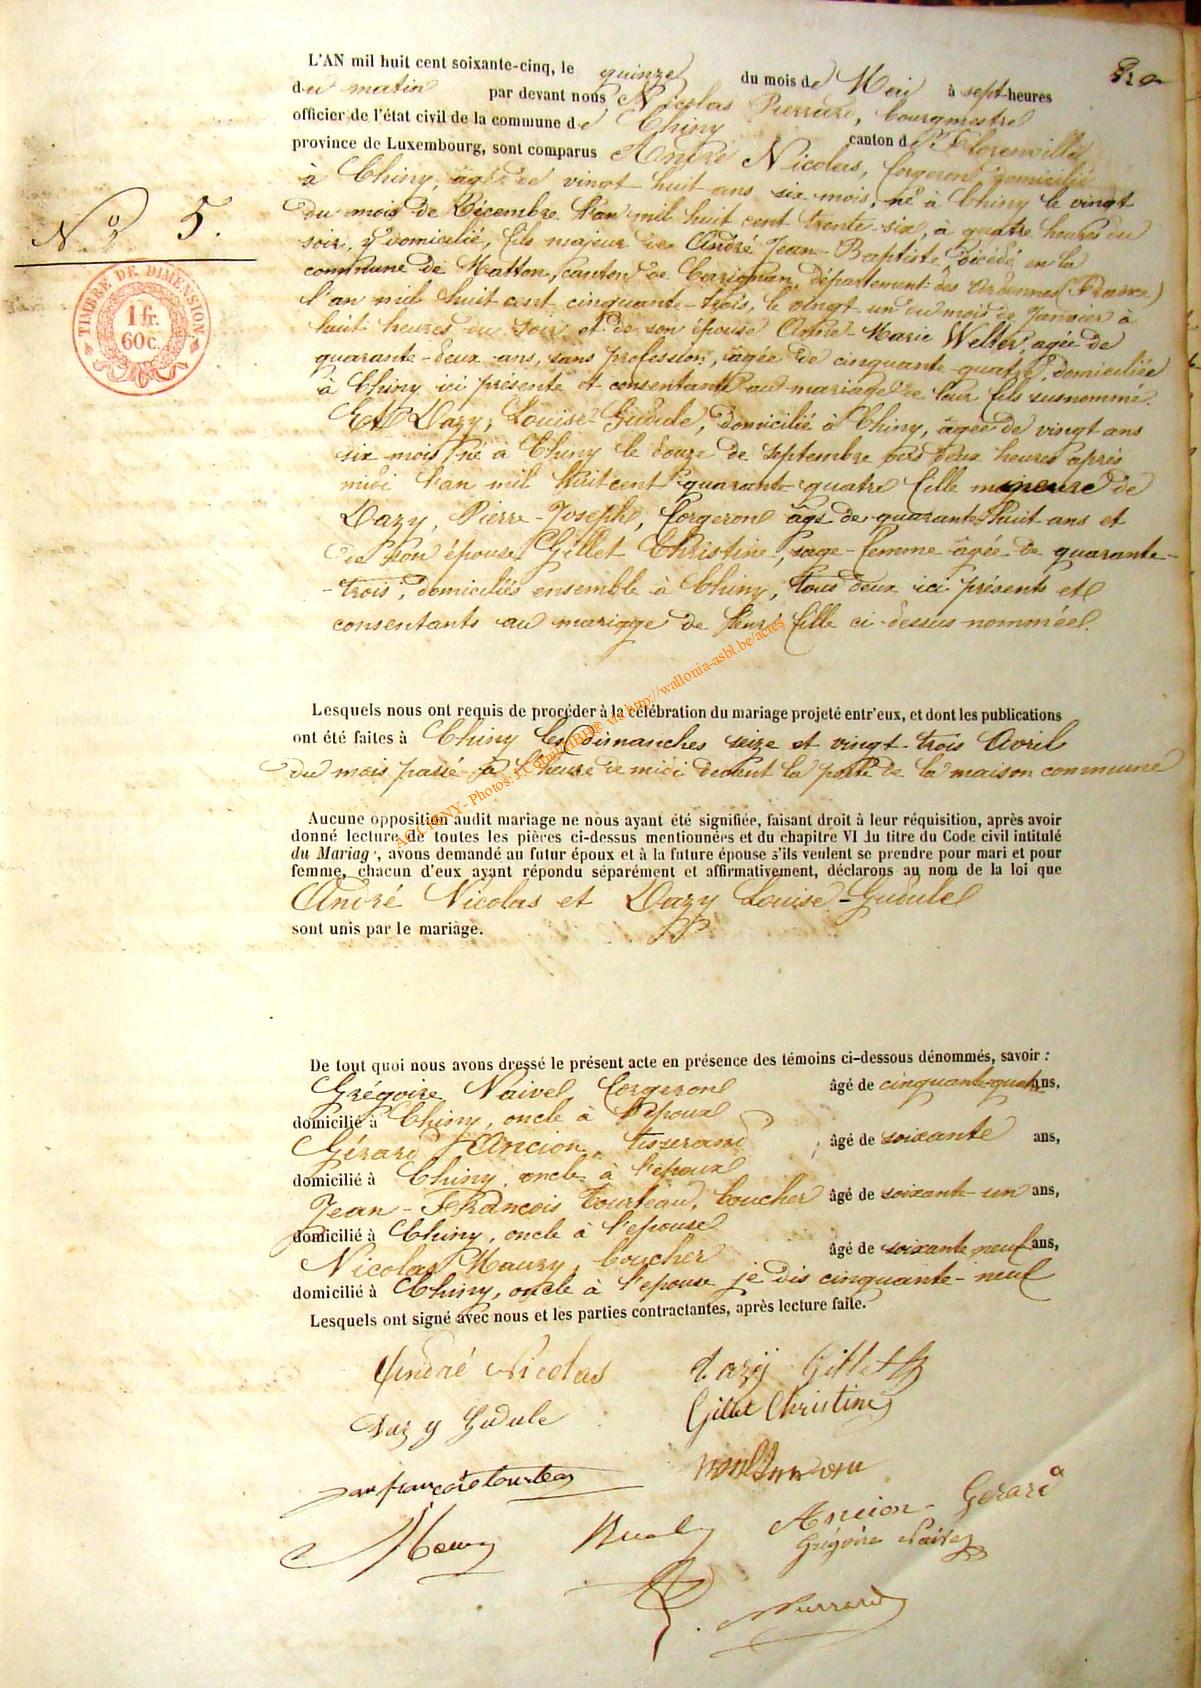 L'AN mil huit cent soixante-cinq, le quinze du mois de Mai à sept heures
du matin par devant nous, Nicolas Pierrard, bourgmestre
officier de l'état civil de la commune de Chiny canton de Florenville
province de Luxembourg, sont comparus André Nicolas, forgeron domicilié
à Chiny, âgé de vingt huit ans six mois, né à Chiny le vingt
du mois de Décembre l'an mil huit cent trente-six, à quatre heures du
soir, y domicilié, fils majeur de André Jean-Baptiste décédé, en la
commune de Matton, canton de Carignan, département des Ardennes (France)
l'an mil huit cent cinquante-trois, le vingt un du mois de Janvier à
huit heures du soir et de son épouse Anne-Marie Welter, agée de
quarante-deux ans, sans profession, agée de cinquante-quatre, domiciliée
à Chiny ici présente et consentante au mariage de leur fils susnommé.
Et Dazy, Louise-Gudule, domicilié à Chiny, agée de vingt ans
six mois, né à Chiny le douze de Septembre vers deux heures après
midi l'an mil huit cent quarante-quatre fille mineure de
Dazy, Pierre-Joseph, forgeron âgé de quarante-huit ans et
de son épouse Gillet Christine, sage-femme agée de quarante-
-trois, domiciliés ensemble à Chiny, tous deux ici présents et
consentants au mariage de leur fille ci-dessus nommée.
N° 5.
TIMBRE DE DIMENSION
1 fr.
60 c.
Lesquels nous ont requis de procéder à la célébration du mariage projeté entr'eux, et dont les publications
ont été faites à Chiny les Dimanches seize et vingt-trois Avril
du mois passé à l'heure de midi devant la porte de la maison commune
Aucune opposition audit mariage ne nous ayant été signifiée, faisant droit à leur réquisition, après avoir
donné lecture de toutes les pièces ci-dessus mentionnées et du chapitre VI du titre du Code civil intitulé
du Mariag, avons demandé au futur époux et à la future épouse s'ils veulent se prendre pour mari et pour
femme, chacun d'eux ayant répondu séparément et affirmativement, déclarons au nom de la loi que
André Nicolas et Dazy Louise-Gudule
sont unis par le mariage.
De tout quoi nous avons dressé le présent acte en présence des témoins ci-dessous dénommés, savoir :
Grégoire Naivel forgeron âgé de cinquante-quatre ans,
domicilié à Chiny, oncle à l'époux
Gérard Ancion, tisserand, âgé de soixante ans,
domicilié à Chiny, oncle à l'époux
Jean-François Tourteau, boucher âgé de soixante-un ans,
domicilié à Chiny, oncle à l'épouse
Nicolas Maury, boucher âgé de soixante neuf ans,
domicilié à Chiny, oncle à l'épouse je dis cinquante-neuf
Lesquels ont signé avec nous et les parties contractantes, après lecture faite.
André Nicolas Dazij Gillet
Dazy Gudule Gillet Christine
jean francois tourteau
Maury Ancion Gerard
Grégoire Naivel
Pierrard
via http://wallonia-asbl.be/actes